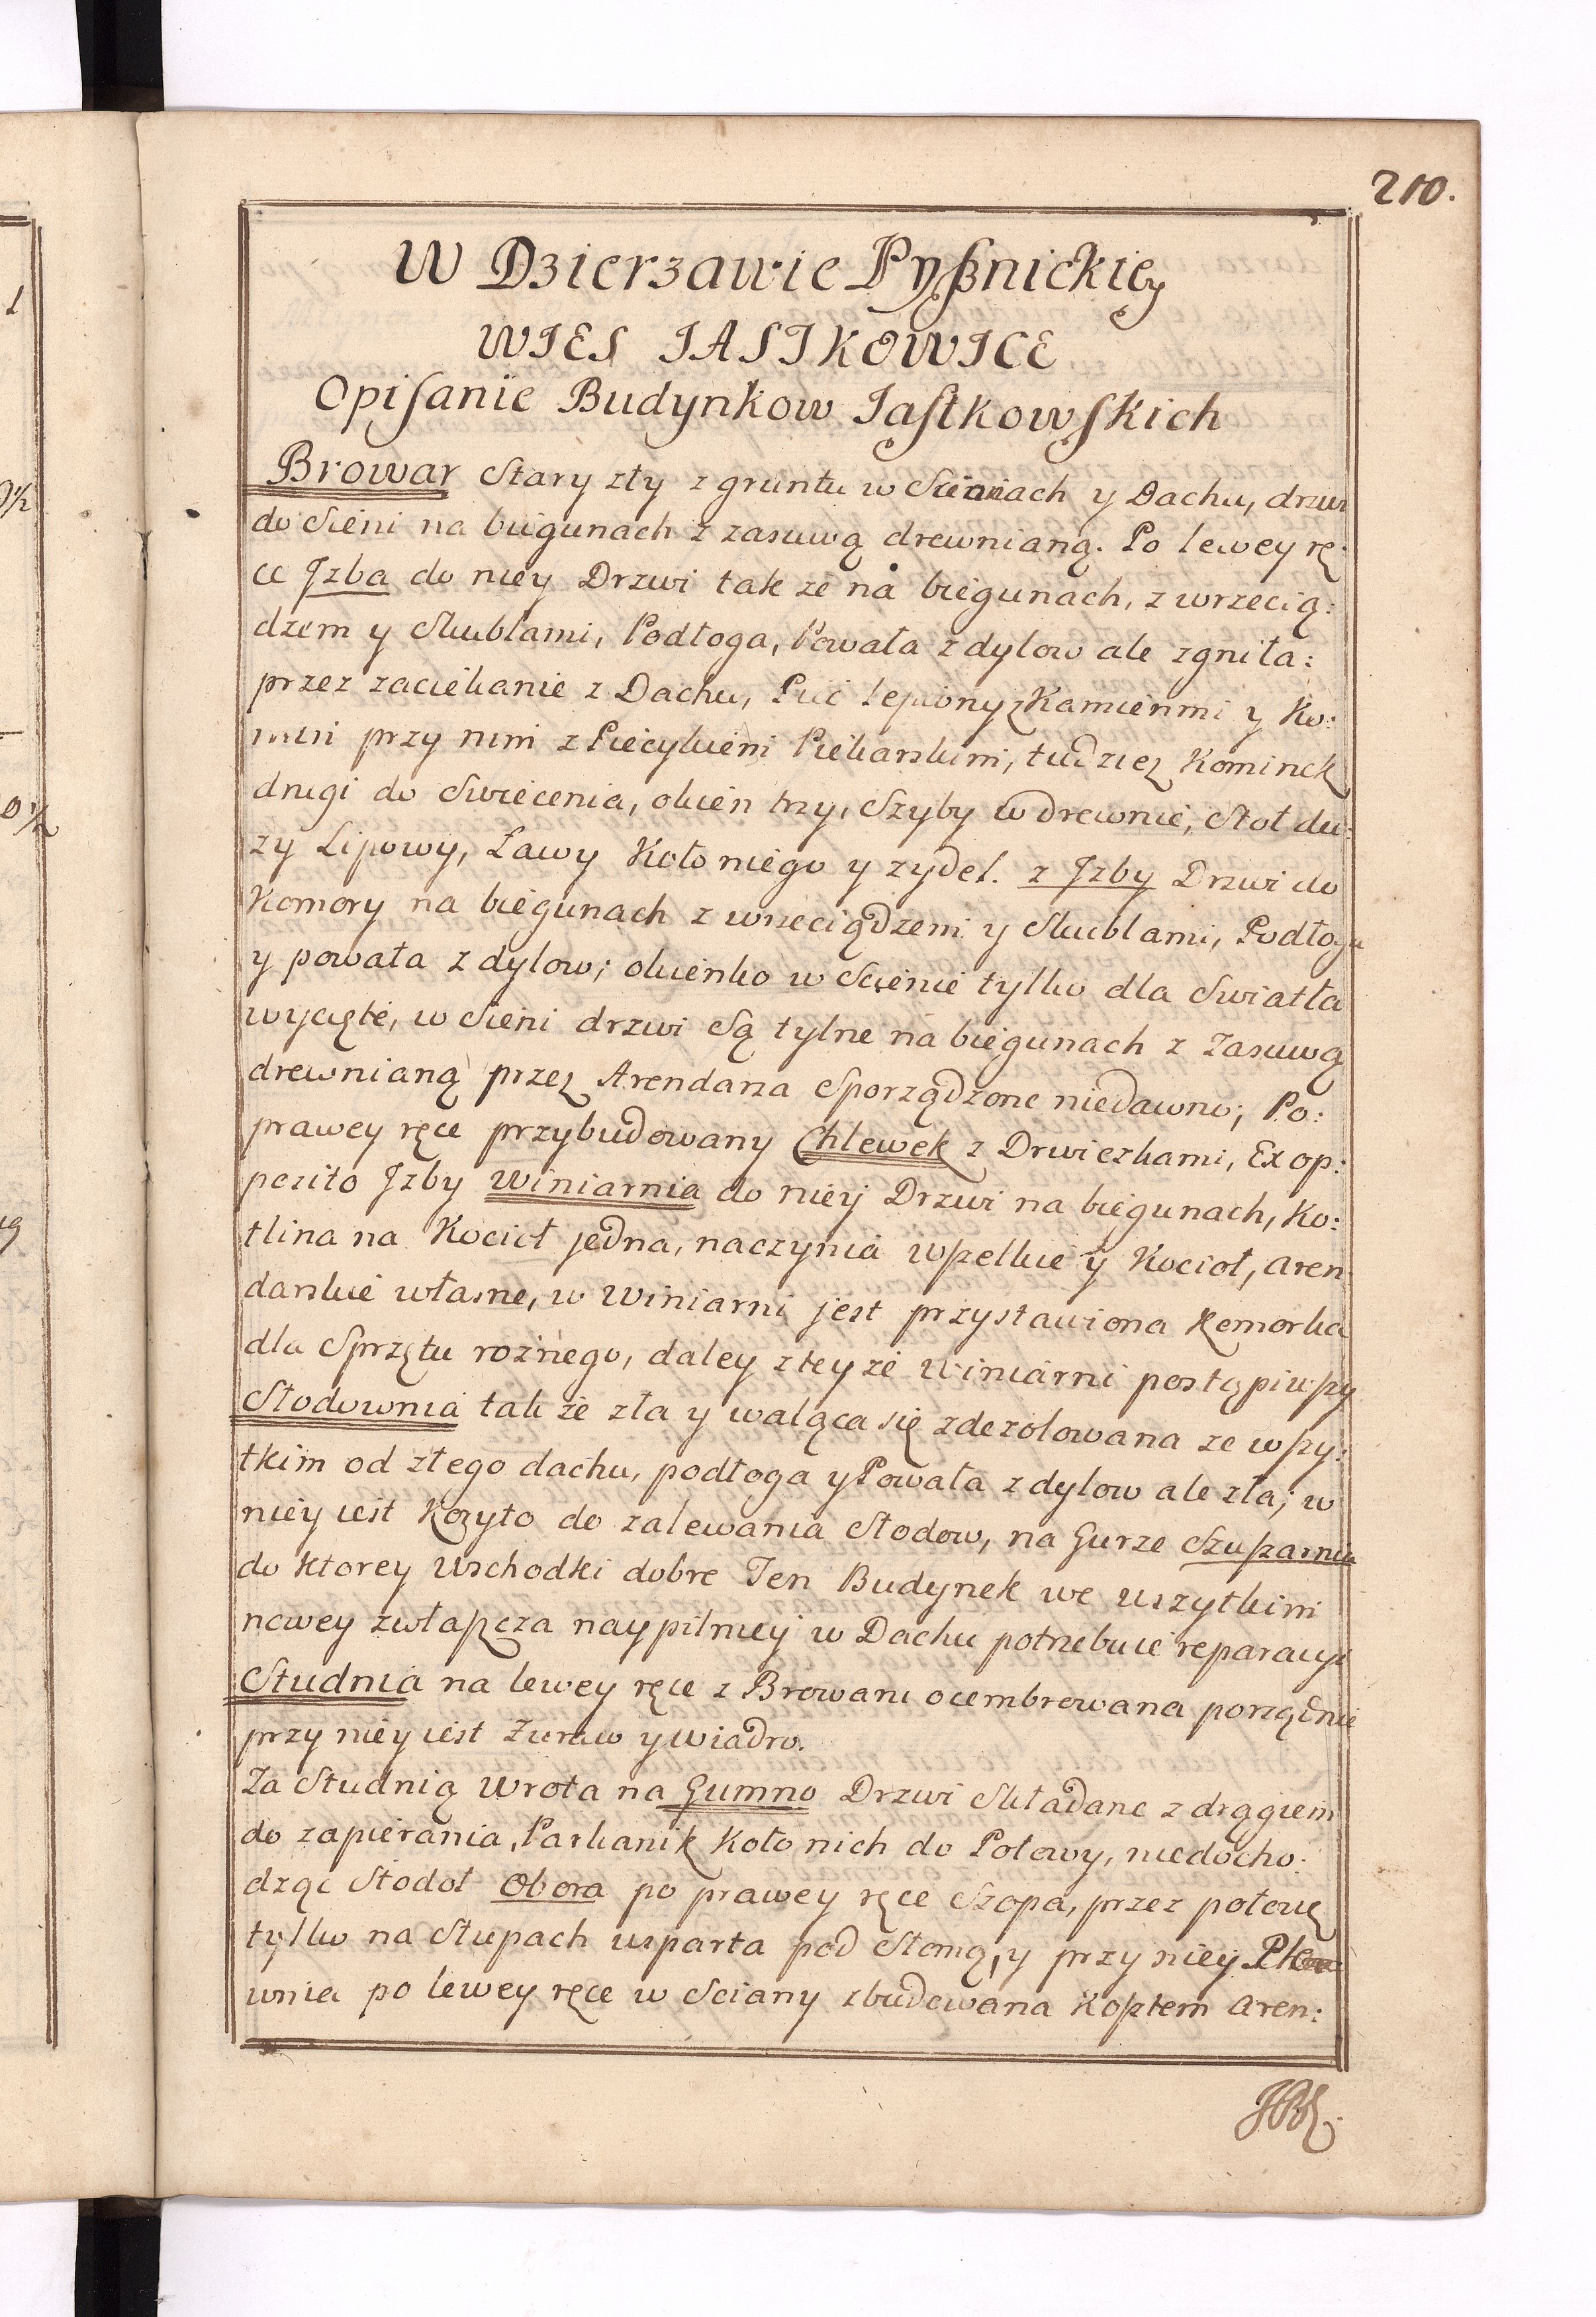 210.
W Dzierzawie Pyßnickiey
WIES IASTKOWICE
Opisanie Budynkow Jastkowskich
Browar Stary zły z gruntu w Scianach y Dachu, drzwi
do Sieni na biegunach z zasuwą drewnianą. Po lewey rę:
ce Jzba do niey Drzwi tak ze na biegunach, z wrzecią:
dzem y Skublami, Podłoga, Powała z dylow ale zgniła:
przez zaciekanie z Dachu, Piec lepiony z Kamieńmi y Ko:
min przy nim z Piecykiem Piekarskim, tudziez Kominek
drugi do Swiecenia, okien trzy, Szyby w drewnie, Stoł du:
zy Lipowy, Ławy Koło niego y zydel. z Jzby Drzwi do
Komory na biegunach z wrzeciądzem y Skublami, Podłoga
y powała z dylow; okienko w Scienie tylko dla Swiatła
wycięte, w Sieni drzwi Są tylne na biegunach z Zasuwą
drewnianą przez Arendarza Sporządzone niedawno; Po:
prawey ręce przybudowany Chlewek z Drwiczkami, Ex op:
posito Jzby Winiarnia do niey Drzwi na biegunach, Ko:
tlina na Kocioł jedna, naczynia wszelkie y Kocioł, Aren
darskie własne, w Winiarni jest przystawiona Komorka
dla Sprzętu rożnego, daley z teyze Winiarni postąpiwszy
Słodownia takze zła y waląca się zdezolowana ze wszy:
tkim od złego dachu, podłoga y Powała z dylow ale zła; w
niey iest Koryto do zalewania Słodow, na Gurze Szuszarnia
do ktorey Wschodki dobre Ten Budynek we wszytkim
nowey zwłaszcza naypilniey w Dachu potrzebuie reparacyi
Studnia na lewey ręce z Browaru ocembrowana porządnie
przy niey iest Zuraw y wiadro.
Za Studnią Wrota na Gumno Drzwi Składane z drągiem
do zapierania, Parkanik Koło nich do Połowy, niedocho:
dząc Stodoł Obora po prawey ręce Szopa, przez połowę
tylko na Słupach wsparta pod Słomą, y przy niey Ple
wnia po lewey ręce w Sciany zbudowana Kosztem Aren: